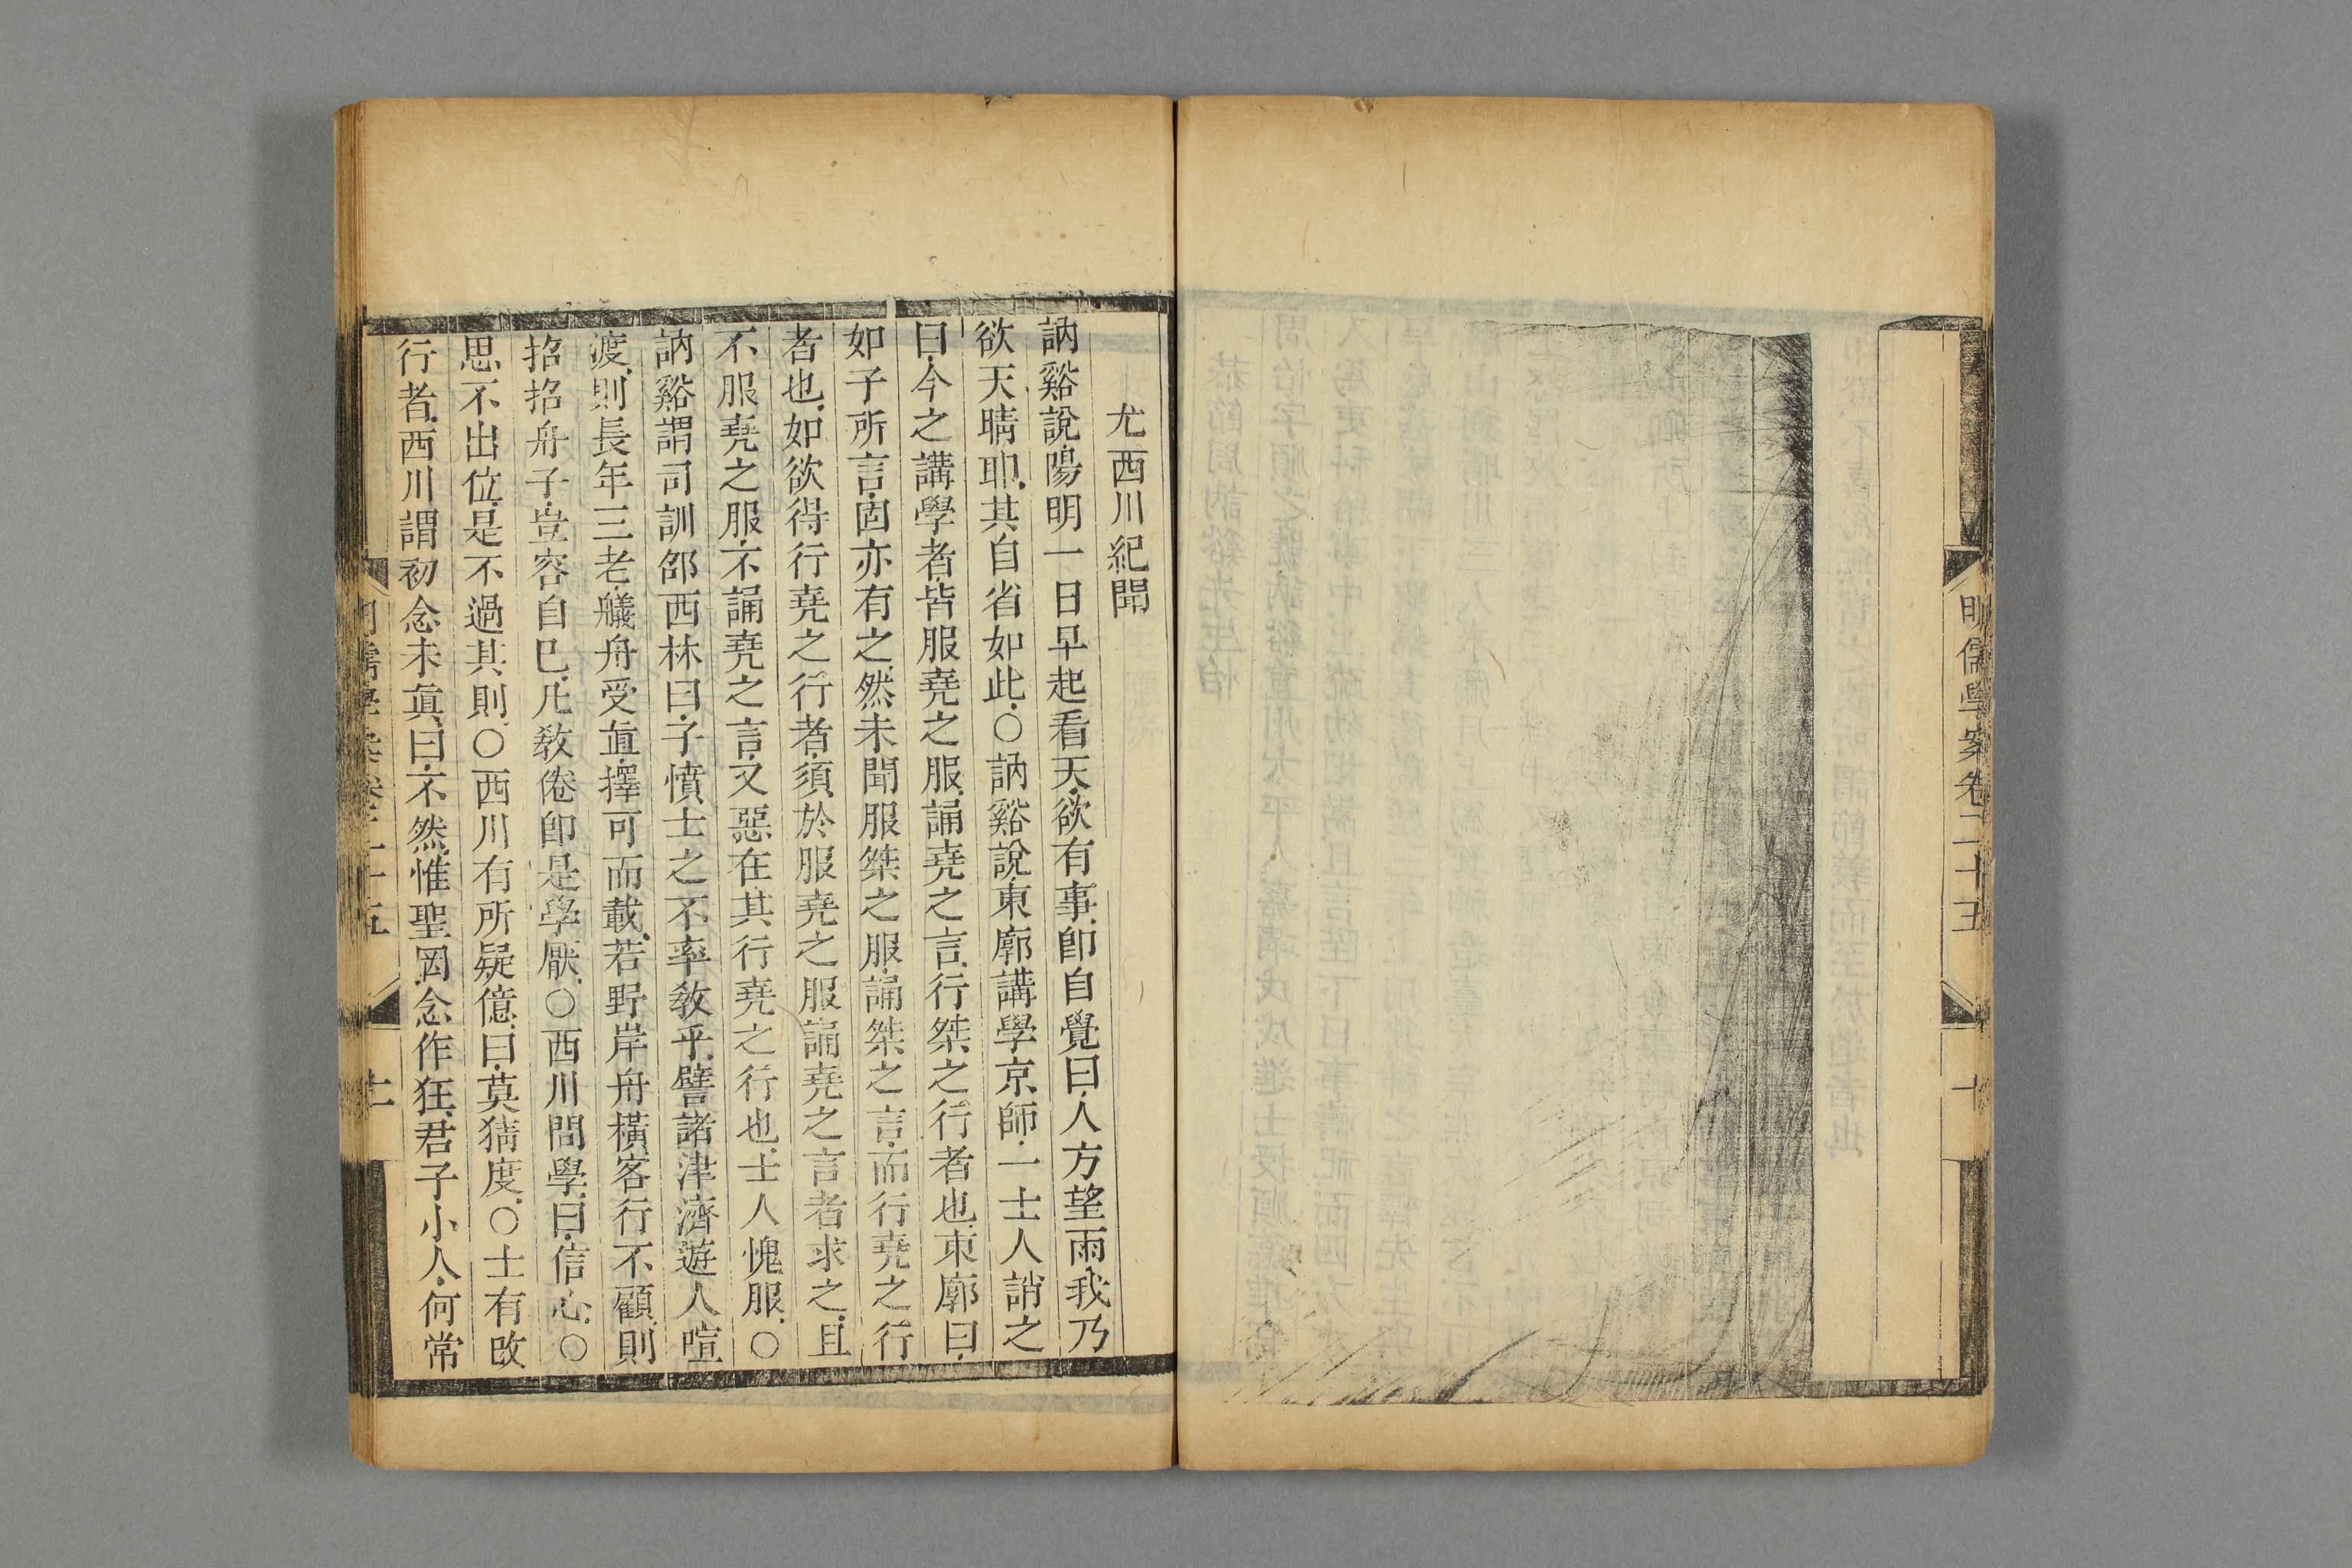 明儒學案卷二十五
十
尤西川紀聞
訥谿說陽明一日早起看天欲有事卽自覺曰人方望雨我乃
欲天晴耶其自省如此○訥谿說東廓講學京師一士人誚之
曰今之講學者皆服堯之服誦堯之言行桀之行者也東廓曰
如子所言固亦有之然未聞服桀之服誦桀之言而行堯之行
者也如欲得行堯之行者須於服堯之服誦堯之言者求之且
不服堯之服不誦堯之言又惡在其行堯之行也士人愧服○
訥谿謂司訓邵西林曰子憤士之不率敎乎譬諸津濟遊人喧
渡則長年三老艤舟受直擇可而載若野岸舟橫客行不顧則
招招舟子豈容自已凡敎倦卽是學厭○西川問學曰信心○
思不出位是不過其則○西川有所疑億曰莫猜度○士有改
行者西川謂初念未眞曰不然惟聖罔念作狂君子小人何常